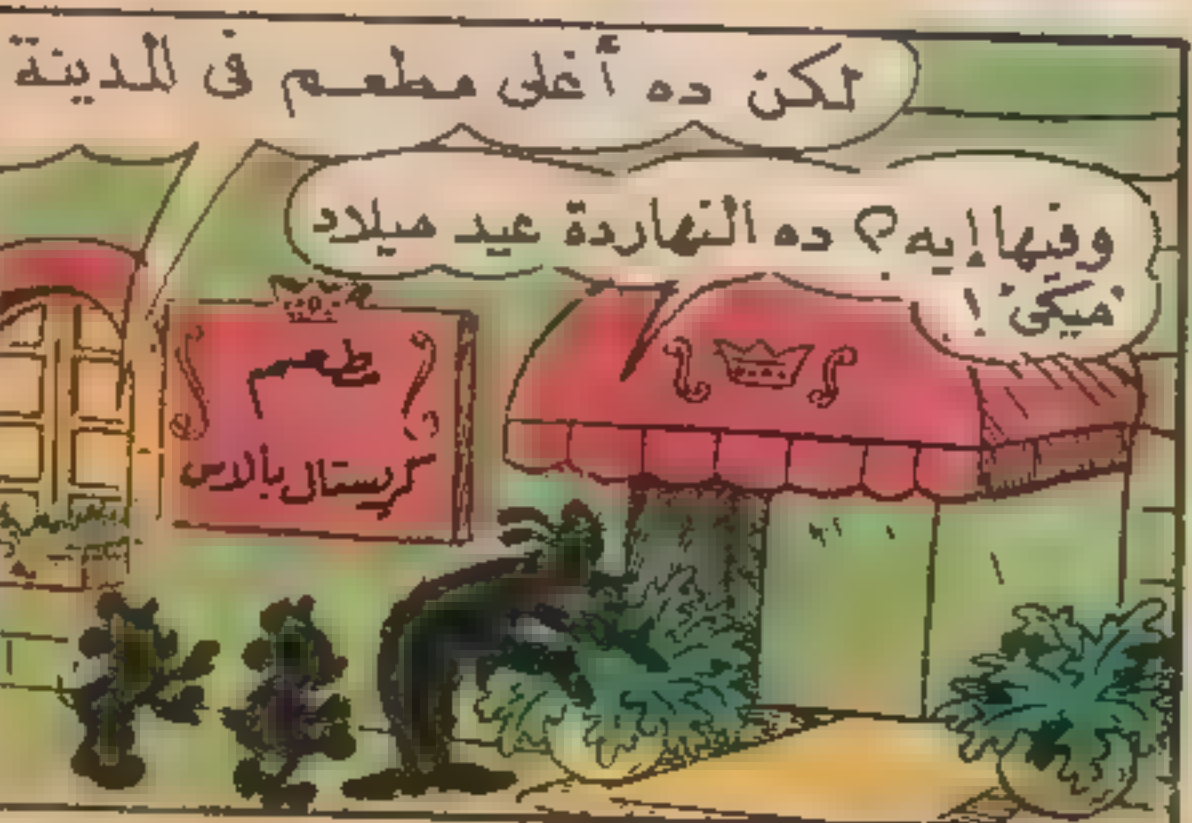 لكن ده أغلى مطعم فى المدينة
وفيها إيه؟ ده النهاردة عيد ميلاد
ميكى !
مطعم
كريستال بالاس